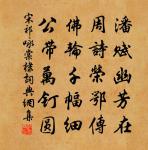 潘賦幽芳在
周詩榮鄂傳
佛輪千幅細
公帶萬釘圓
宋祁咏棠棣詞典網集